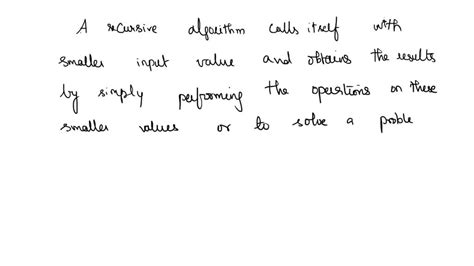 A recursive algorithm calls itself with
smaller input value and obtains the results
by simply performing the operations on these
smaller values or to solve a proble